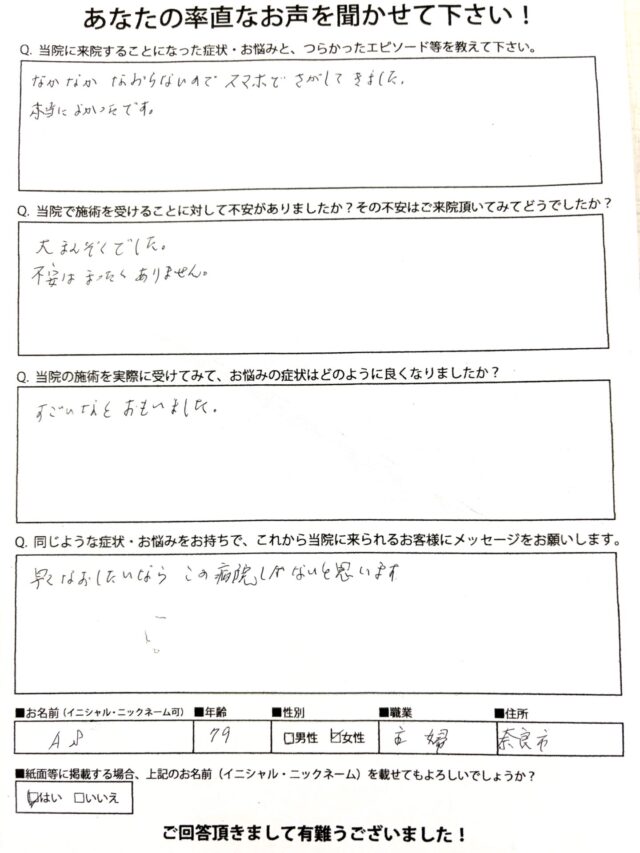 あなたの率直なお声を聞かせて下さい！
Q. 当院に来院することになった症状・お悩みと、つらかったエピソード等を教えて下さい。
なかなか なおらないので スマホで さがして きました。
本当に よかったです。
Q. 当院で施術を受けることに対して不安がありましたか？その不安はご来院頂いてみてどうでしたか？
大まんぞくでした。
不安は まったく ありません。
Q. 当院の施術を実際に受けてみて、お悩みの症状はどのように良くなりましたか？
すごいなと おもいました。
Q. 同じような症状・お悩みをお持ちで、これから当院に来られるお客様にメッセージをお願いします。
早く なおしたいなら この病院しかないと思います
■お名前（イニシャル・ニックネーム可） ■年齢 ■性別 ■職業 ■住所
79 □男性 ☑女性 主婦 奈良市
■紙面等に掲載する場合、上記のお名前（イニシャル・ニックネーム）を載せてもよろしいでしょうか？
☑はい □いいえ
ご回答頂きまして有難うございました！